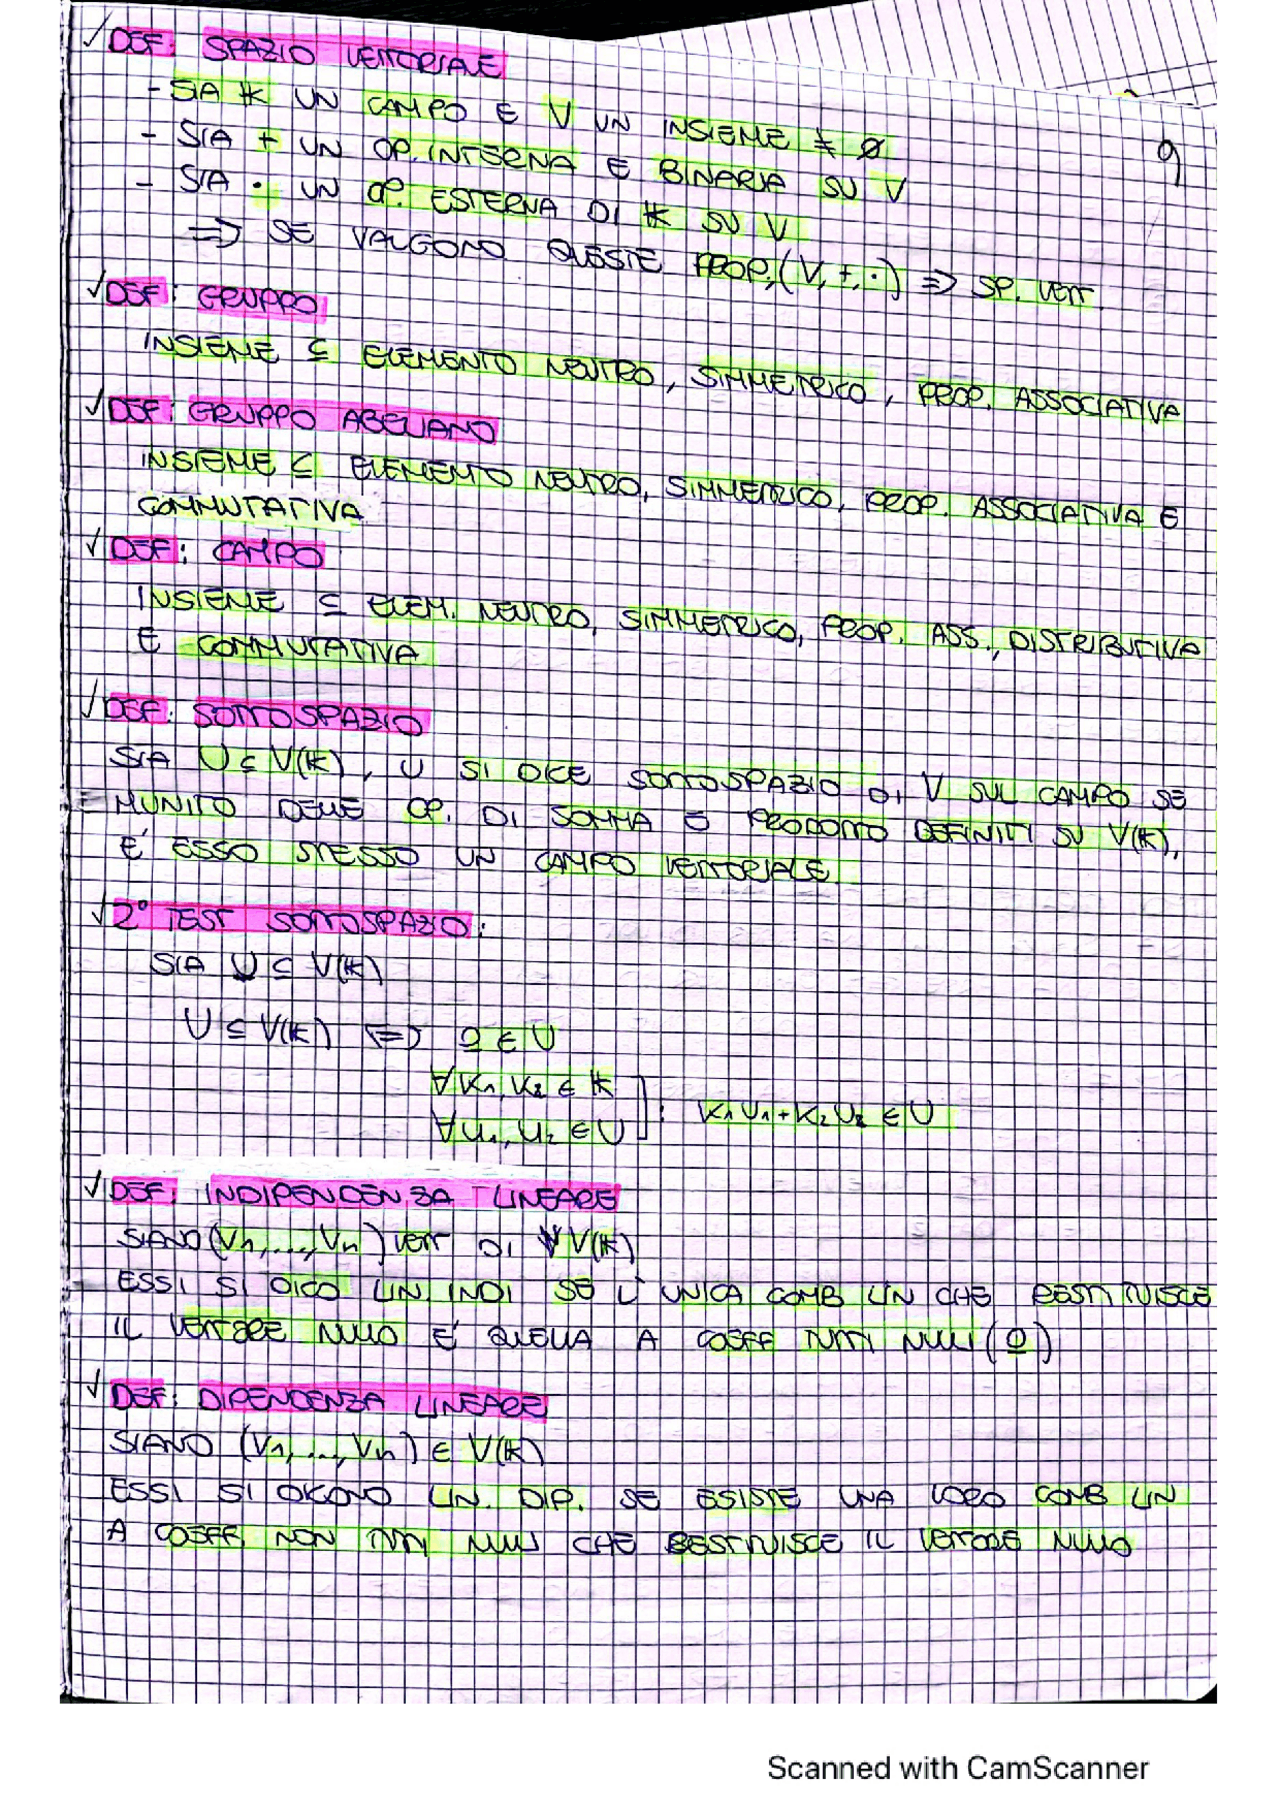 √ DEF: SPAZIO VETTORIALE
- SIA 𝕂 UN CAMPO E V UN INSIEME ≠ ∅
- SIA + UN OP. INTERNA E BINARIA SU V
- SIA · UN OP. ESTERNA DI 𝕂 SU V
=> SE VALGONO QUESTE PROP, (V, +, ·) => SP. VETT
9
√ DEF: GRUPPO
INSIEME ⊆ ELEMENTO NEUTRO, SIMMETRICO, PROP. ASSOCIATIVA
√ DEF: GRUPPO ABELIANO
INSIEME ⊆ ELEMENTO NEUTRO, SIMMETRICO, PROP. ASSOCIATIVA E
COMMUTATIVA
√ DEF: CAMPO
INSIEME ⊆ ELEM. NEUTRO, SIMMETRICO, PROP. ASS., DISTRIBUTIVA
E COMMUTATIVA
√ DEF: SOTTOSPAZIO
SIA U ⊆ V(𝕂), U SI DICE SOTTOSPAZIO DI V SUL CAMPO SE
MUNITO DELLE OP. DI SOMMA E PRODOTTO DEFINITI SU V(𝕂),
E' ESSO STESSO UN CAMPO VETTORIALE
√ 2° TEST SOTTOSPAZIO:
SIA U ⊆ V(𝕂)
U ≤ V(𝕂) <=> 0 ∈ U
∀ K1, K2 ∈ 𝕂
∀ U1, U2 ∈ U ] : K1U1 + K2U2 ∈ U
√ DEF: INDIPENDENZA LINEARE
SIANO (V1, ..., Vn) VETT DI V(𝕂)
ESSI SI DICO LIN INDI SE L'UNICA COMB LIN CHE RESTITUISCE
IL VETTORE NULLO E' QUELLA A COEFF TUTTI NULLI (0)
√ DEF: DIPENDENZA LINEARE
SIANO (V1, ..., Vn) ∈ V(𝕂)
ESSI SI DICONO LIN. DIP. SE ESISTE UNA LORO COMB LIN
A COEFF. NON TUTTI NULLI CHE RESTITUISCE IL VETTORE NULLO
Scanned with CamScanner